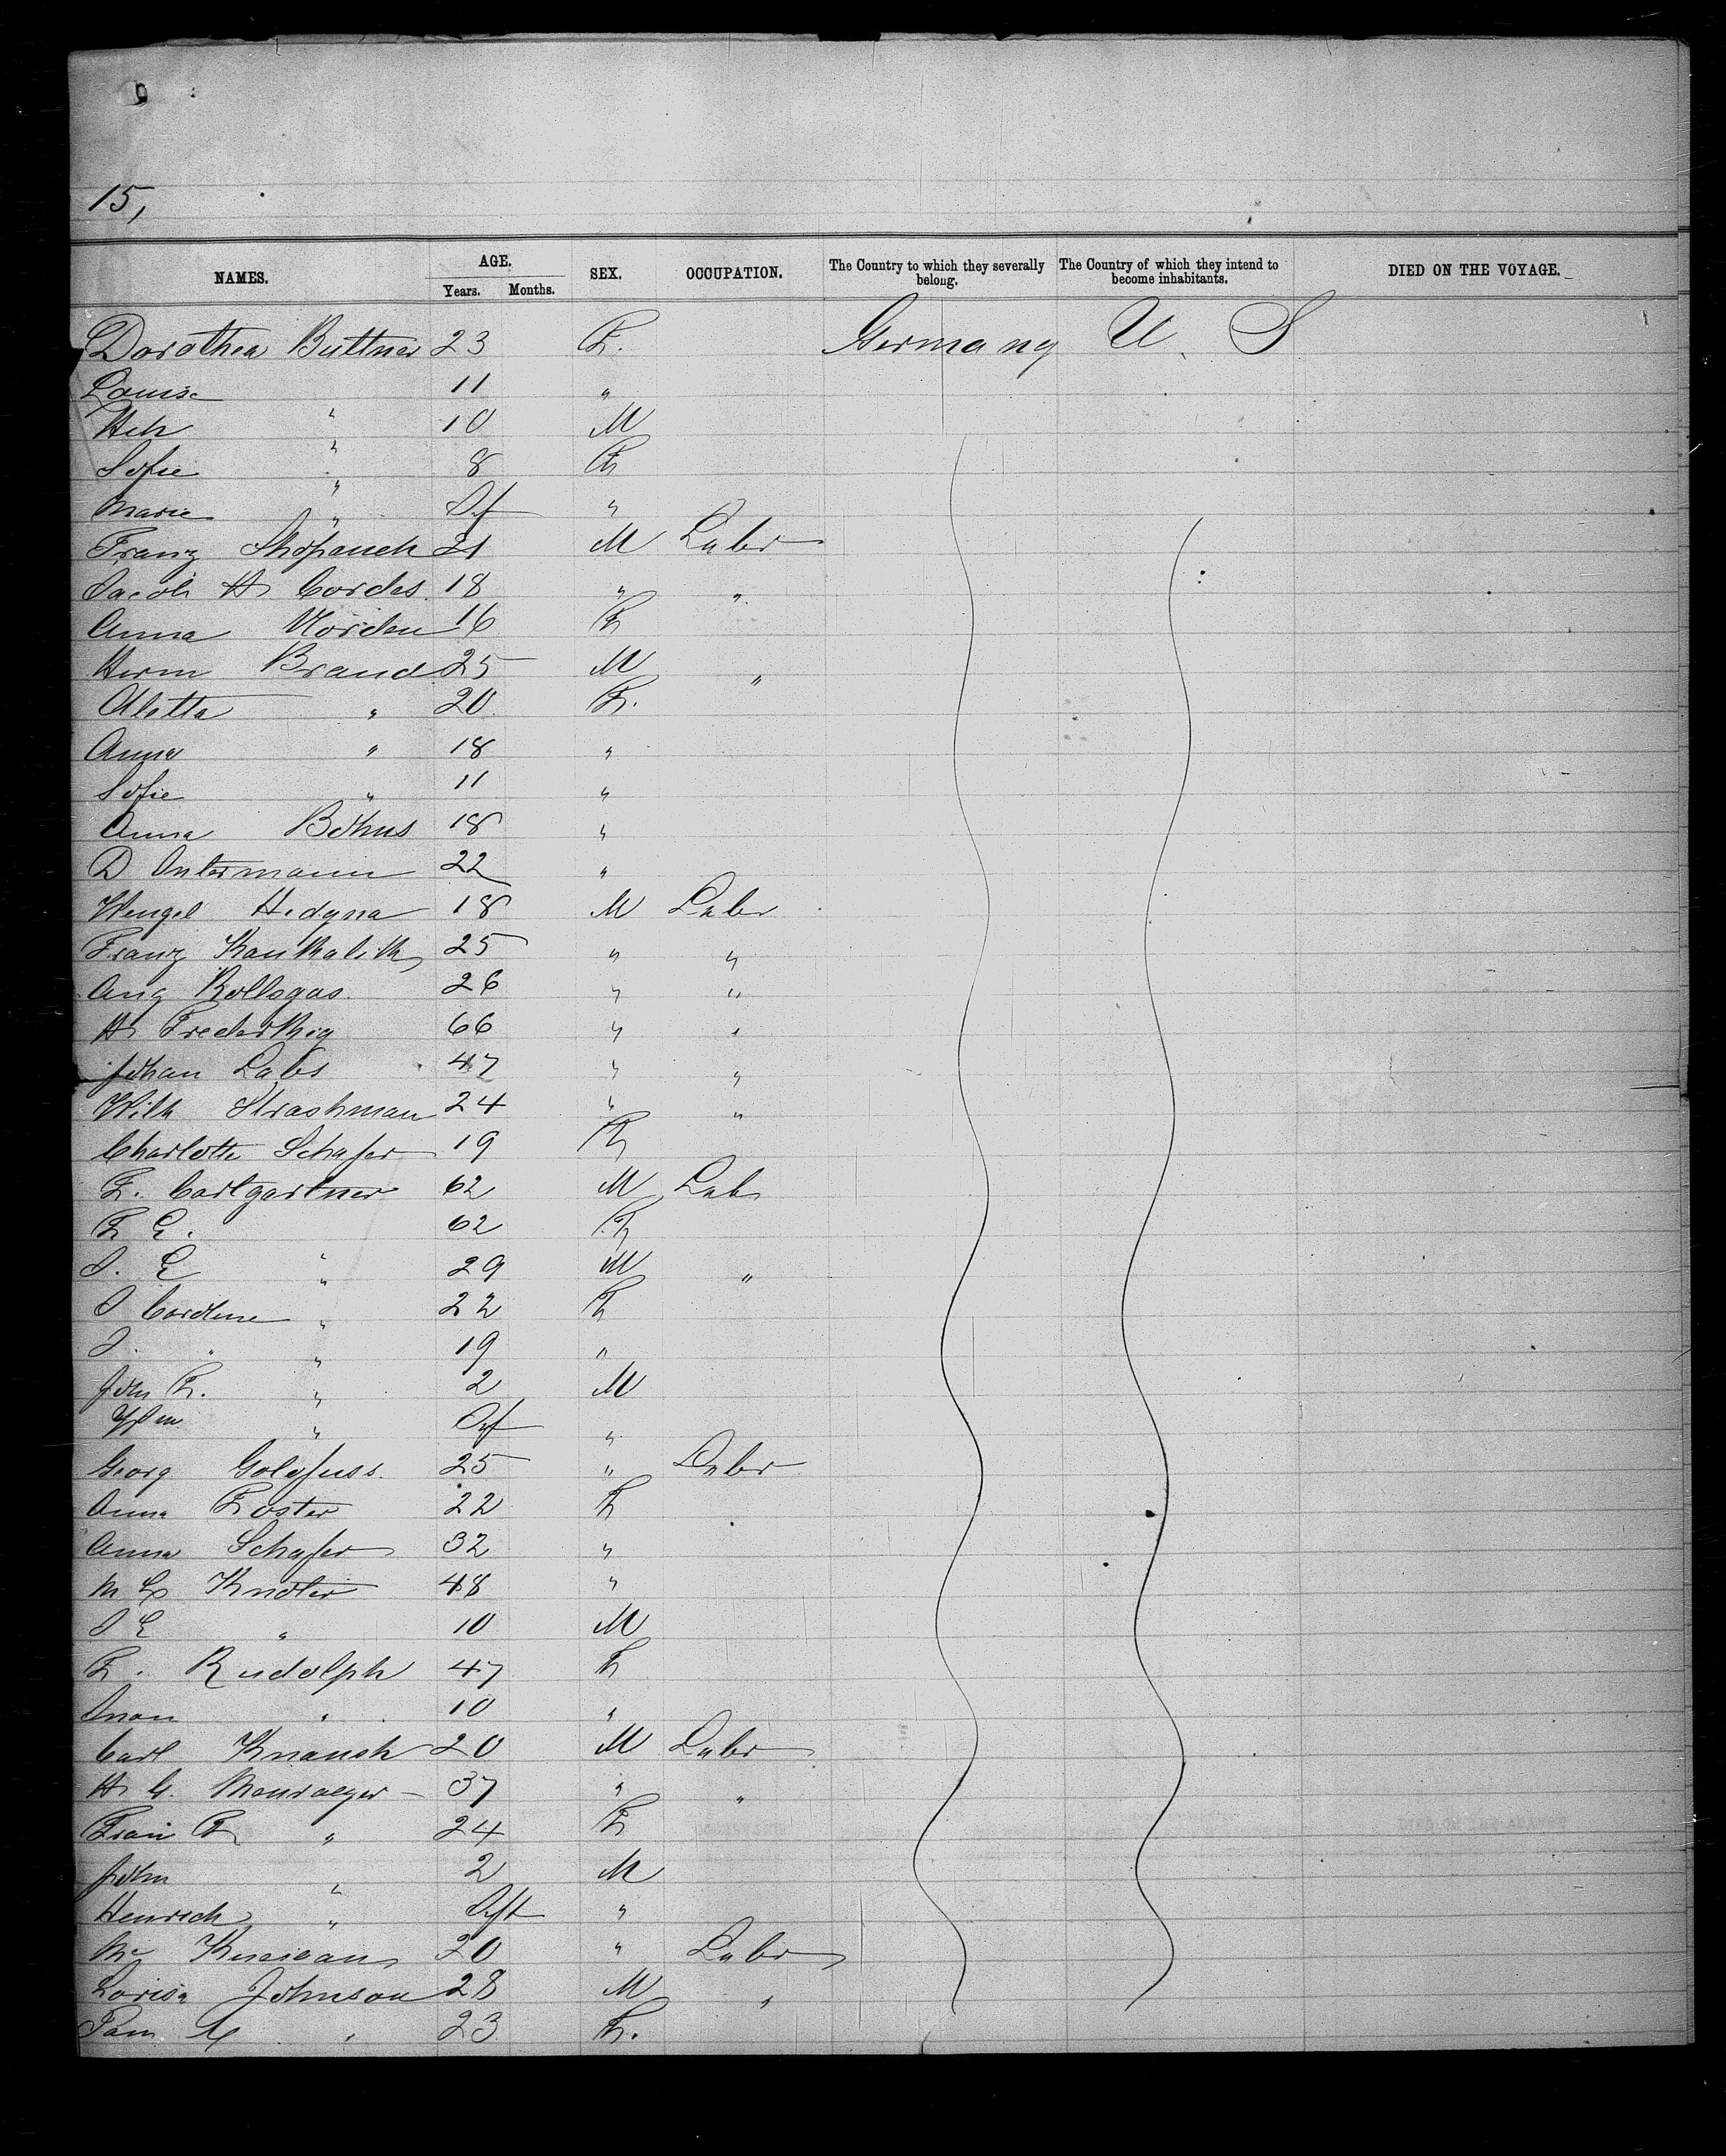 15,
NAMES. AGE. SEX. OCCUPATION. The Country to which they severally belong. The Country of which they intend to become inhabitants. DIED ON THE VOYAGE.
Years. Months.
Dorothea Buttner 23 F. Germany U. S
Louise 11 "
Hch " 10 M
Sofie " 8 F
Marie " " Inf "
Franz 21 M Labr
Jacob H Cordes. 18 " "
Anna Norden 16 F
Herm Brand 25 M "
Aletta " 20 F.
Anna " 18 "
Sofie " 11 "
Anna Bohus 18 "
D Ontermann 22 "
Wenzel Hedyna 18 M Labr
Franz Kaukalik 25 " "
Aug Rollsgas. 26 " "
H Frederking 66 " "
Johan Labs 47 " "
Wilh Strashman 24 " "
Charlotte Schafer 19 F
F. Cartgartner 62 M Lab
F E. 62 F
J. E " " 29 M "
J Cordine " 22 F
J. " " 19 "
John F. " 2 M
Wm " Inf "
Georg Goldfuss. 25 " Labr
Anna Foster 22 F
Anna Schafer 32 "
M E Knoter 48 "
J E " 10 M
F. Rudolph 47 F
" 10 "
Carl Knaush 20 M Labr
H G. 37 " "
F " 24 F
John " 2 M
Henrich " Inft "
20 " Labr
Johnson 28 M "
" 23 F.